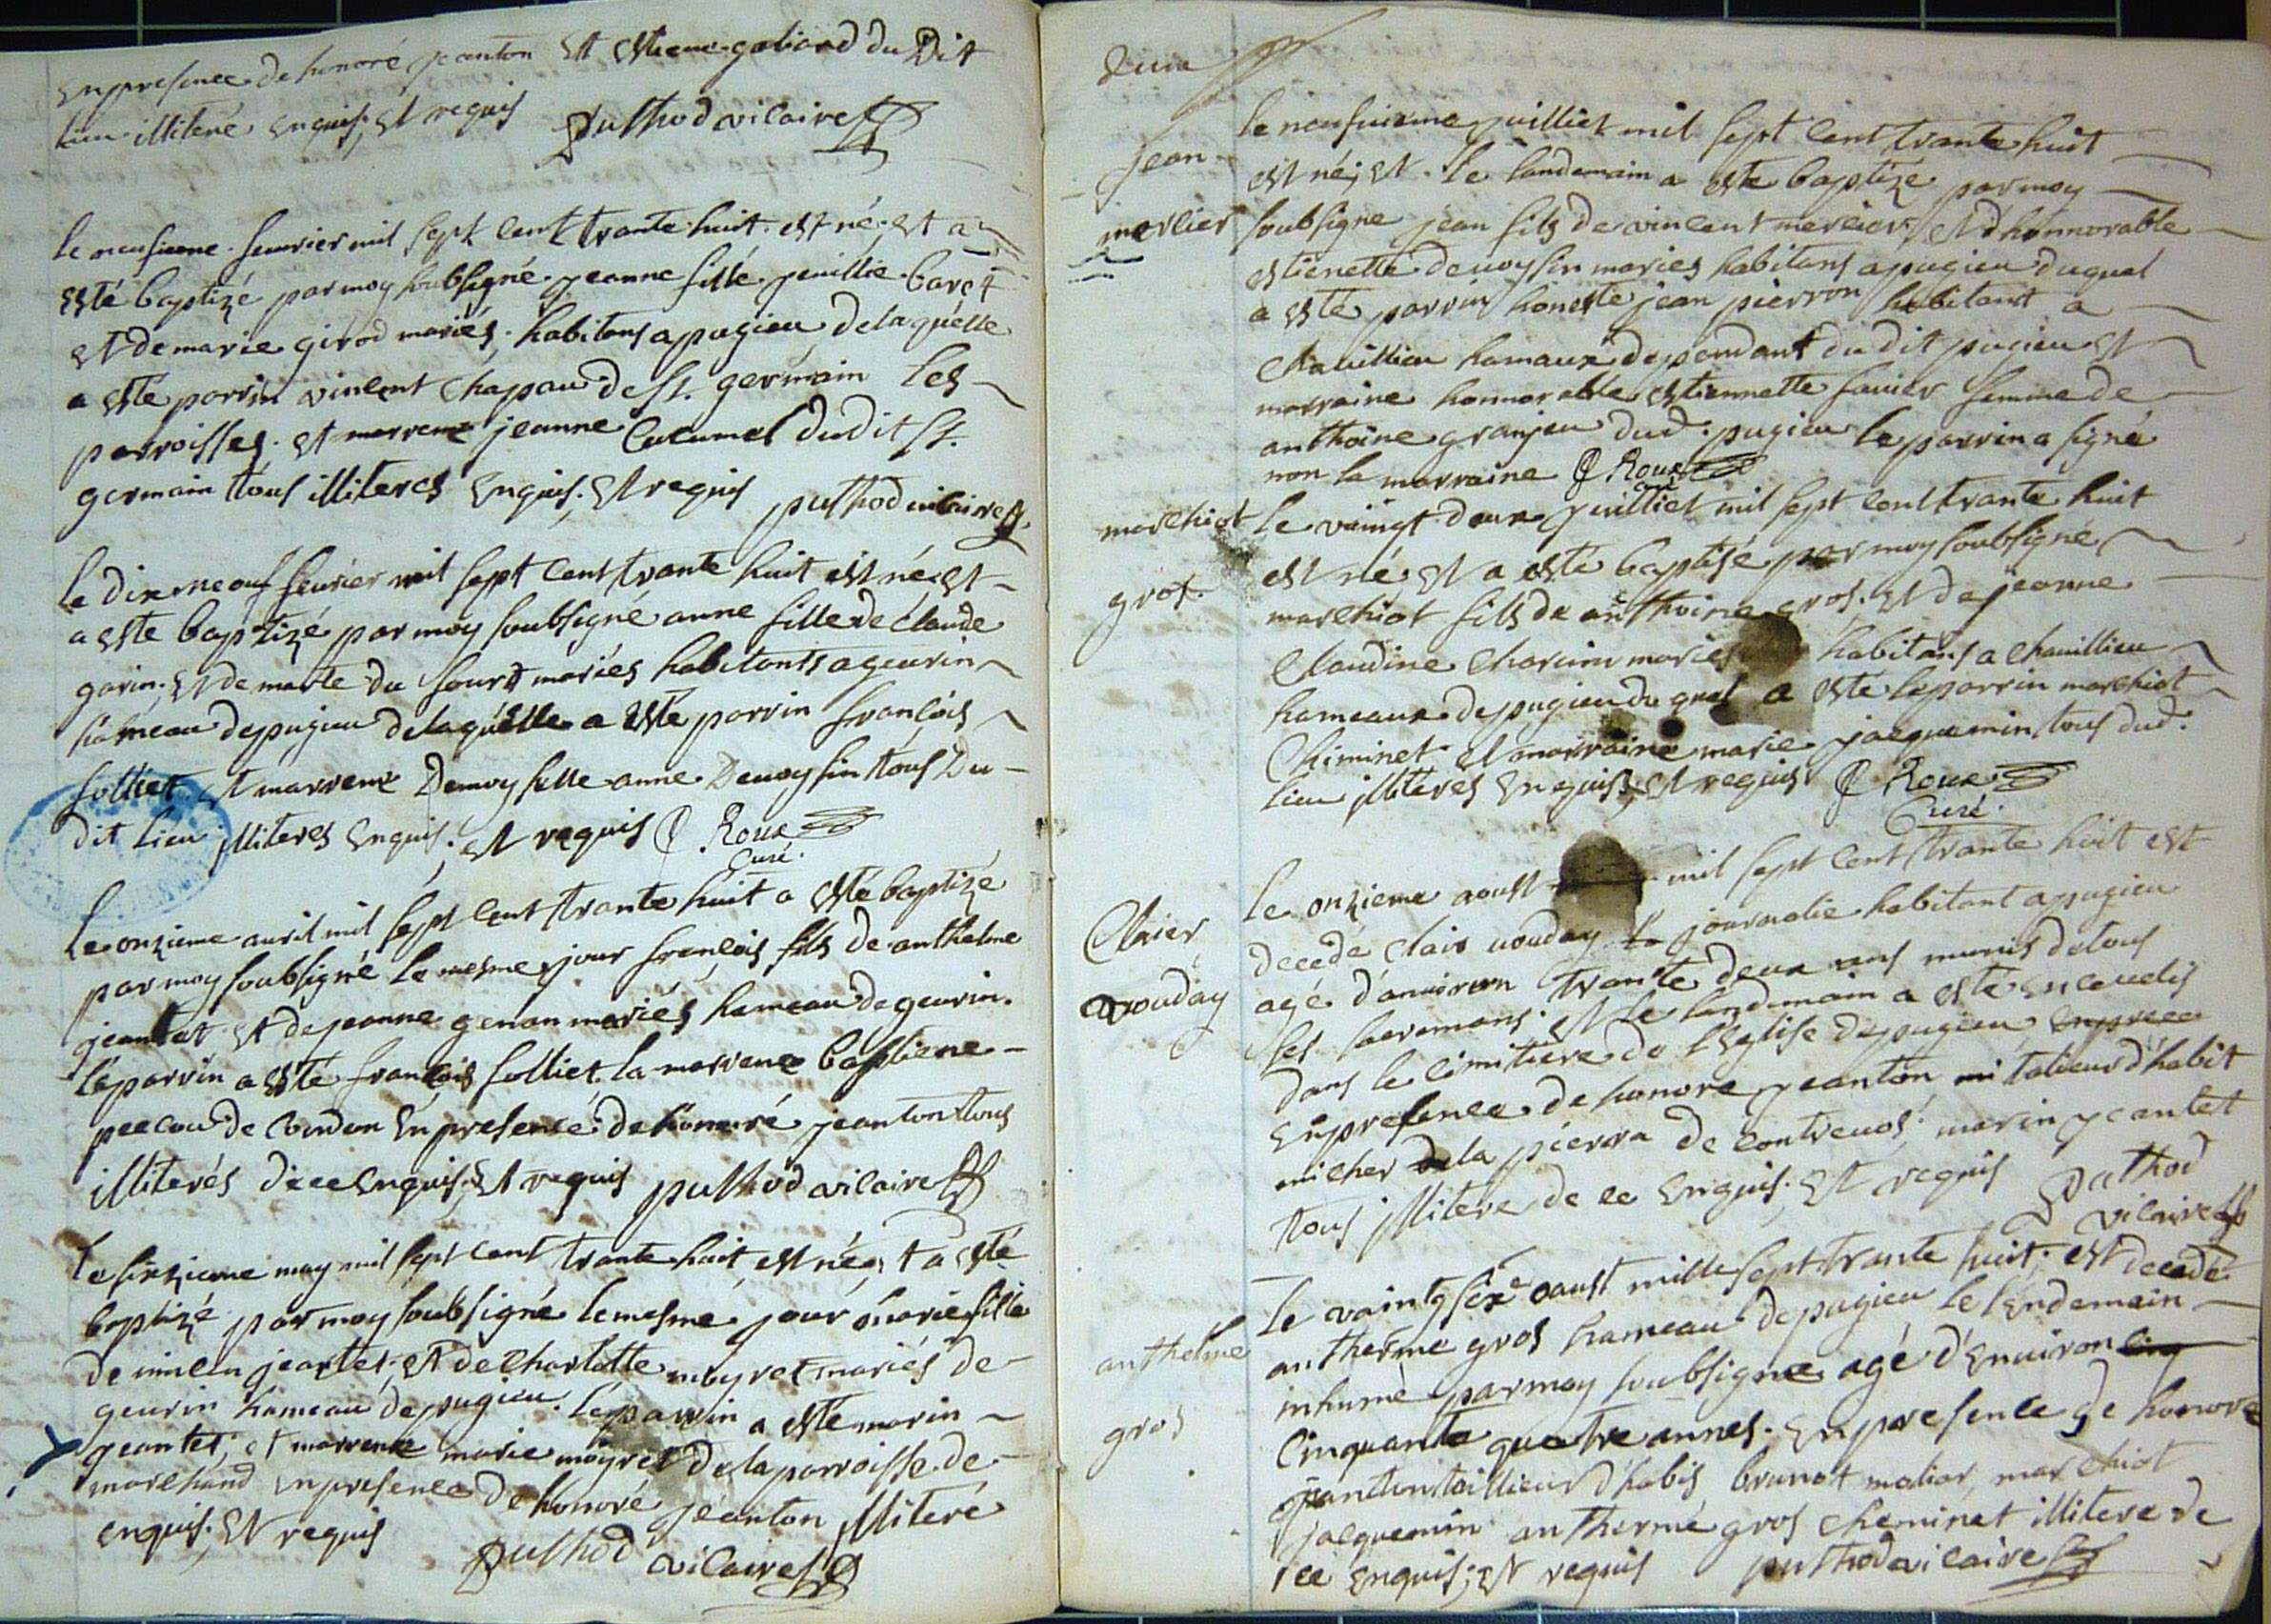 En presence de honoré jeanton Et Estiene gabiard du Dit
lieu illiteré Enquis; Et requis puthod vicaire
le neufieme feuvrier mil sept cent trante huit est né; Et a
esté baptizé par moy soubsigné jeanne fille baret
Et de marie girod mariés habitans a pugieu de la quelle
a esté parrin vincent chapau de st. germain les
parroisses Et marrene jeanne Cucumel du dit st.
germain tous illiteres Enquis; Et requis puthod vicaire
le dix neouf feuvrier mil sept cent trante huit est né; Et
a este baptizé par moy soubsigné anne fille de claude
garin; Et de marte du fourt mariés habitants a geurin
haméau de pugieu de laquélle a esté parrin francois
folliet Et marrene Demoyselle anne Deuoysin tous Du
dit lieu illiteres Enquis; Et requis Roux
Curé.
le onzieme auril mil sept cent trante huit a esté baptizé
par moy soubsigné le mesme jour francois fils de anthelme
jeantet Et de jeanne genon mariés hameau de geurin.
le parrin a esté francois folliet la marrene bastiene
peecou de Cordon En présence de honnoré jeanton tous
illiterés de ce Enquis; Et requis puthod vicaire
le sixzieme may mil sept cent trante huit est né; Et a esté
baptizé par moy soubsigné le mesme jour marie fille
de jeantet; Et de Charlotte meyret mariés de
geurin hameau de pugieu. le parrin a esté marin
jeantet; et marrene marie mayret de la parroisse de
marchand En presence de honoré jeanton illiteré
enquis; Et requis puthod vicaire
jean
merlier
le neufuieme juilliet mil sept cent trante huit
est né; Et le landemain a esté baptizé par moy
soubsigne jean fils de vincent merlier Et dhonnorable
estienette deuoysin mariés habitans a pugieu duquel
a esté parrin honeste jean pierron habitant a
Chauillieu hamaux dependant du dit pugieu Et
marraine honnorable estiennette fauier femme de
anthoine granjeu dud. pugieu le parrin a signé
non la marraine Roux
curé
marchiot
gros.
le vaingt deux juilliet mil sept cent trante huit
est né; Et a esté baptisé par moy soubsigné
marchiot fils de anthoine gros. Et de jeanne
Claudine Charuin mariés habitans a chauillieu
hameaux de pugieu du quel a esté le parrin marchiot
Chiminet Et marraine marie jacquemin tous dud.
lieu illiteres Enquis; Et requis Roux
Curé.
Claier
vouday
le onzieme aoust mil sept cent trante huit est
decedé clair vouday journalie habitant a pugieu
agé d'anuiron trante deux ans munis de tous
ses sacremans. Et le landemain a esté Enceuelis
dans le cimitiere de l'Eglise de pugieu
En presence de honore jeanton talieur d'habit
micher de la pierra de contreuos; marin jeantet
tous illitere de ce Enquis; Et requis puthod
vicaire
anthelme
gros
le vaintg sixe oaust mille sept trante huit; est decedé
antherme gros hameau de pugieu le lendemain
inhumé par moy soubsigne agé d'Enuiron cinq
Cinquante quatre annes. En presence de honore
jeanton taillieur d'habis brunot maliar, marchiot
jacquemin antherme gros cheminet illitere de
ce Enquis; Et requis puthod vicaire